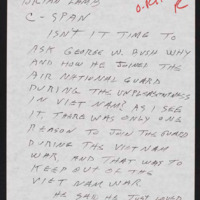 BRIAN LAMB
C-SPAN
ISN'T IT TIME TO
ASK GEORGE W. BUSH WHY
AND HOW HE JOINED THE
AIR NATIONAL GUARD
DURING THE UNPLEASANTNESS
IN VIET NAM? AS I SEE
IT, THERE WAS ONLY ONE
REASON TO JOIN THE GUARD
DURING THE VIET NAM
WAR, AND THAT WAS TO
KEEP OUT OF THE
VIET NAM WAR.